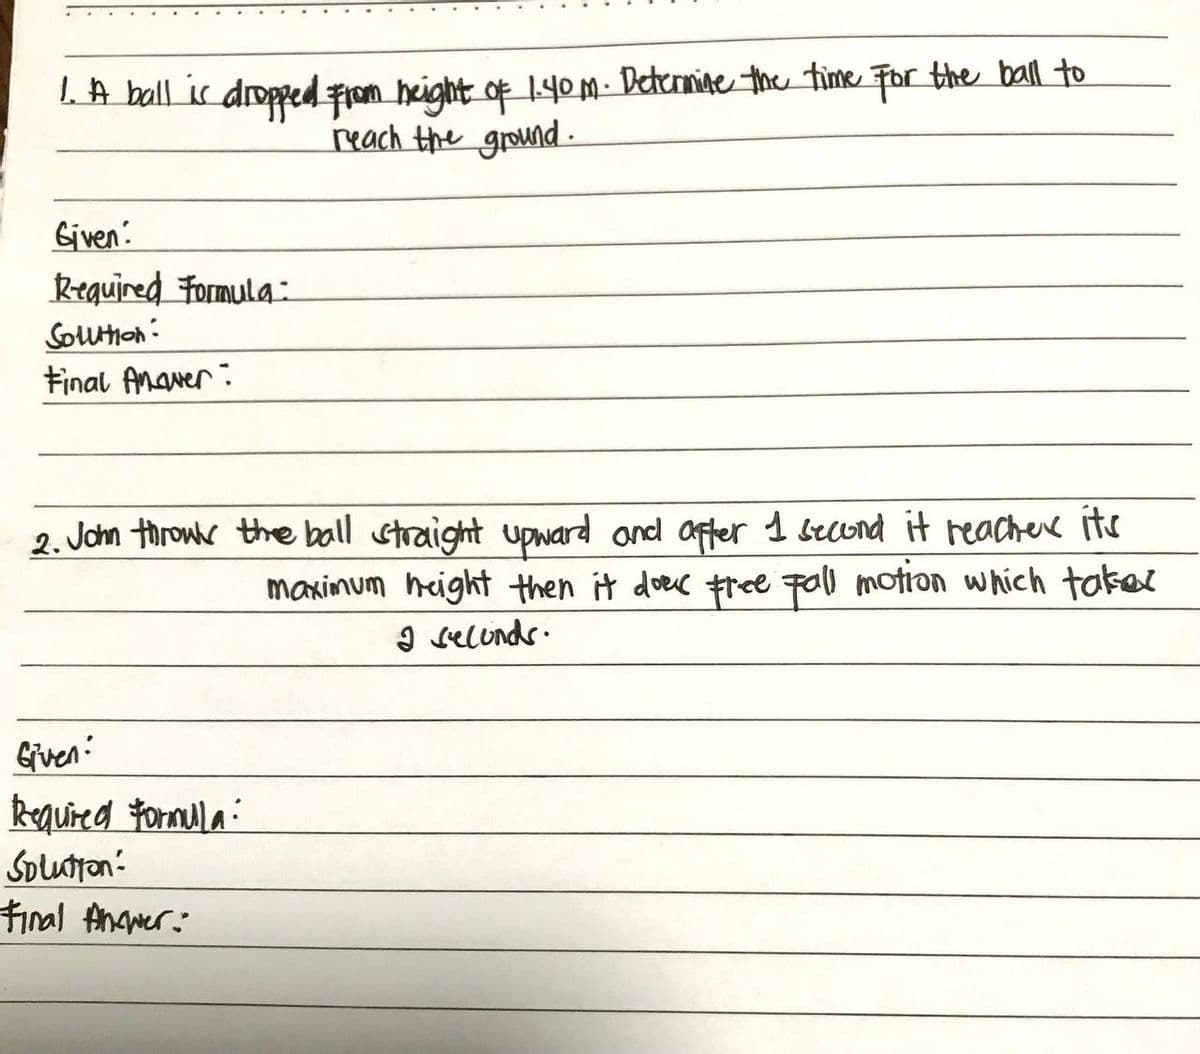 1. A ball is dropped from height of 1.40 m. Determine the time for the ball to
reach the ground.
Given:
Required Formula:
Solution:
Final Answer:
2. John throws the ball straight upward and after 1 second it reaches its
maximum height then it does free fall motion which takes
2 seconds.
Given:
Required formula:
Solution:
Final Answer: